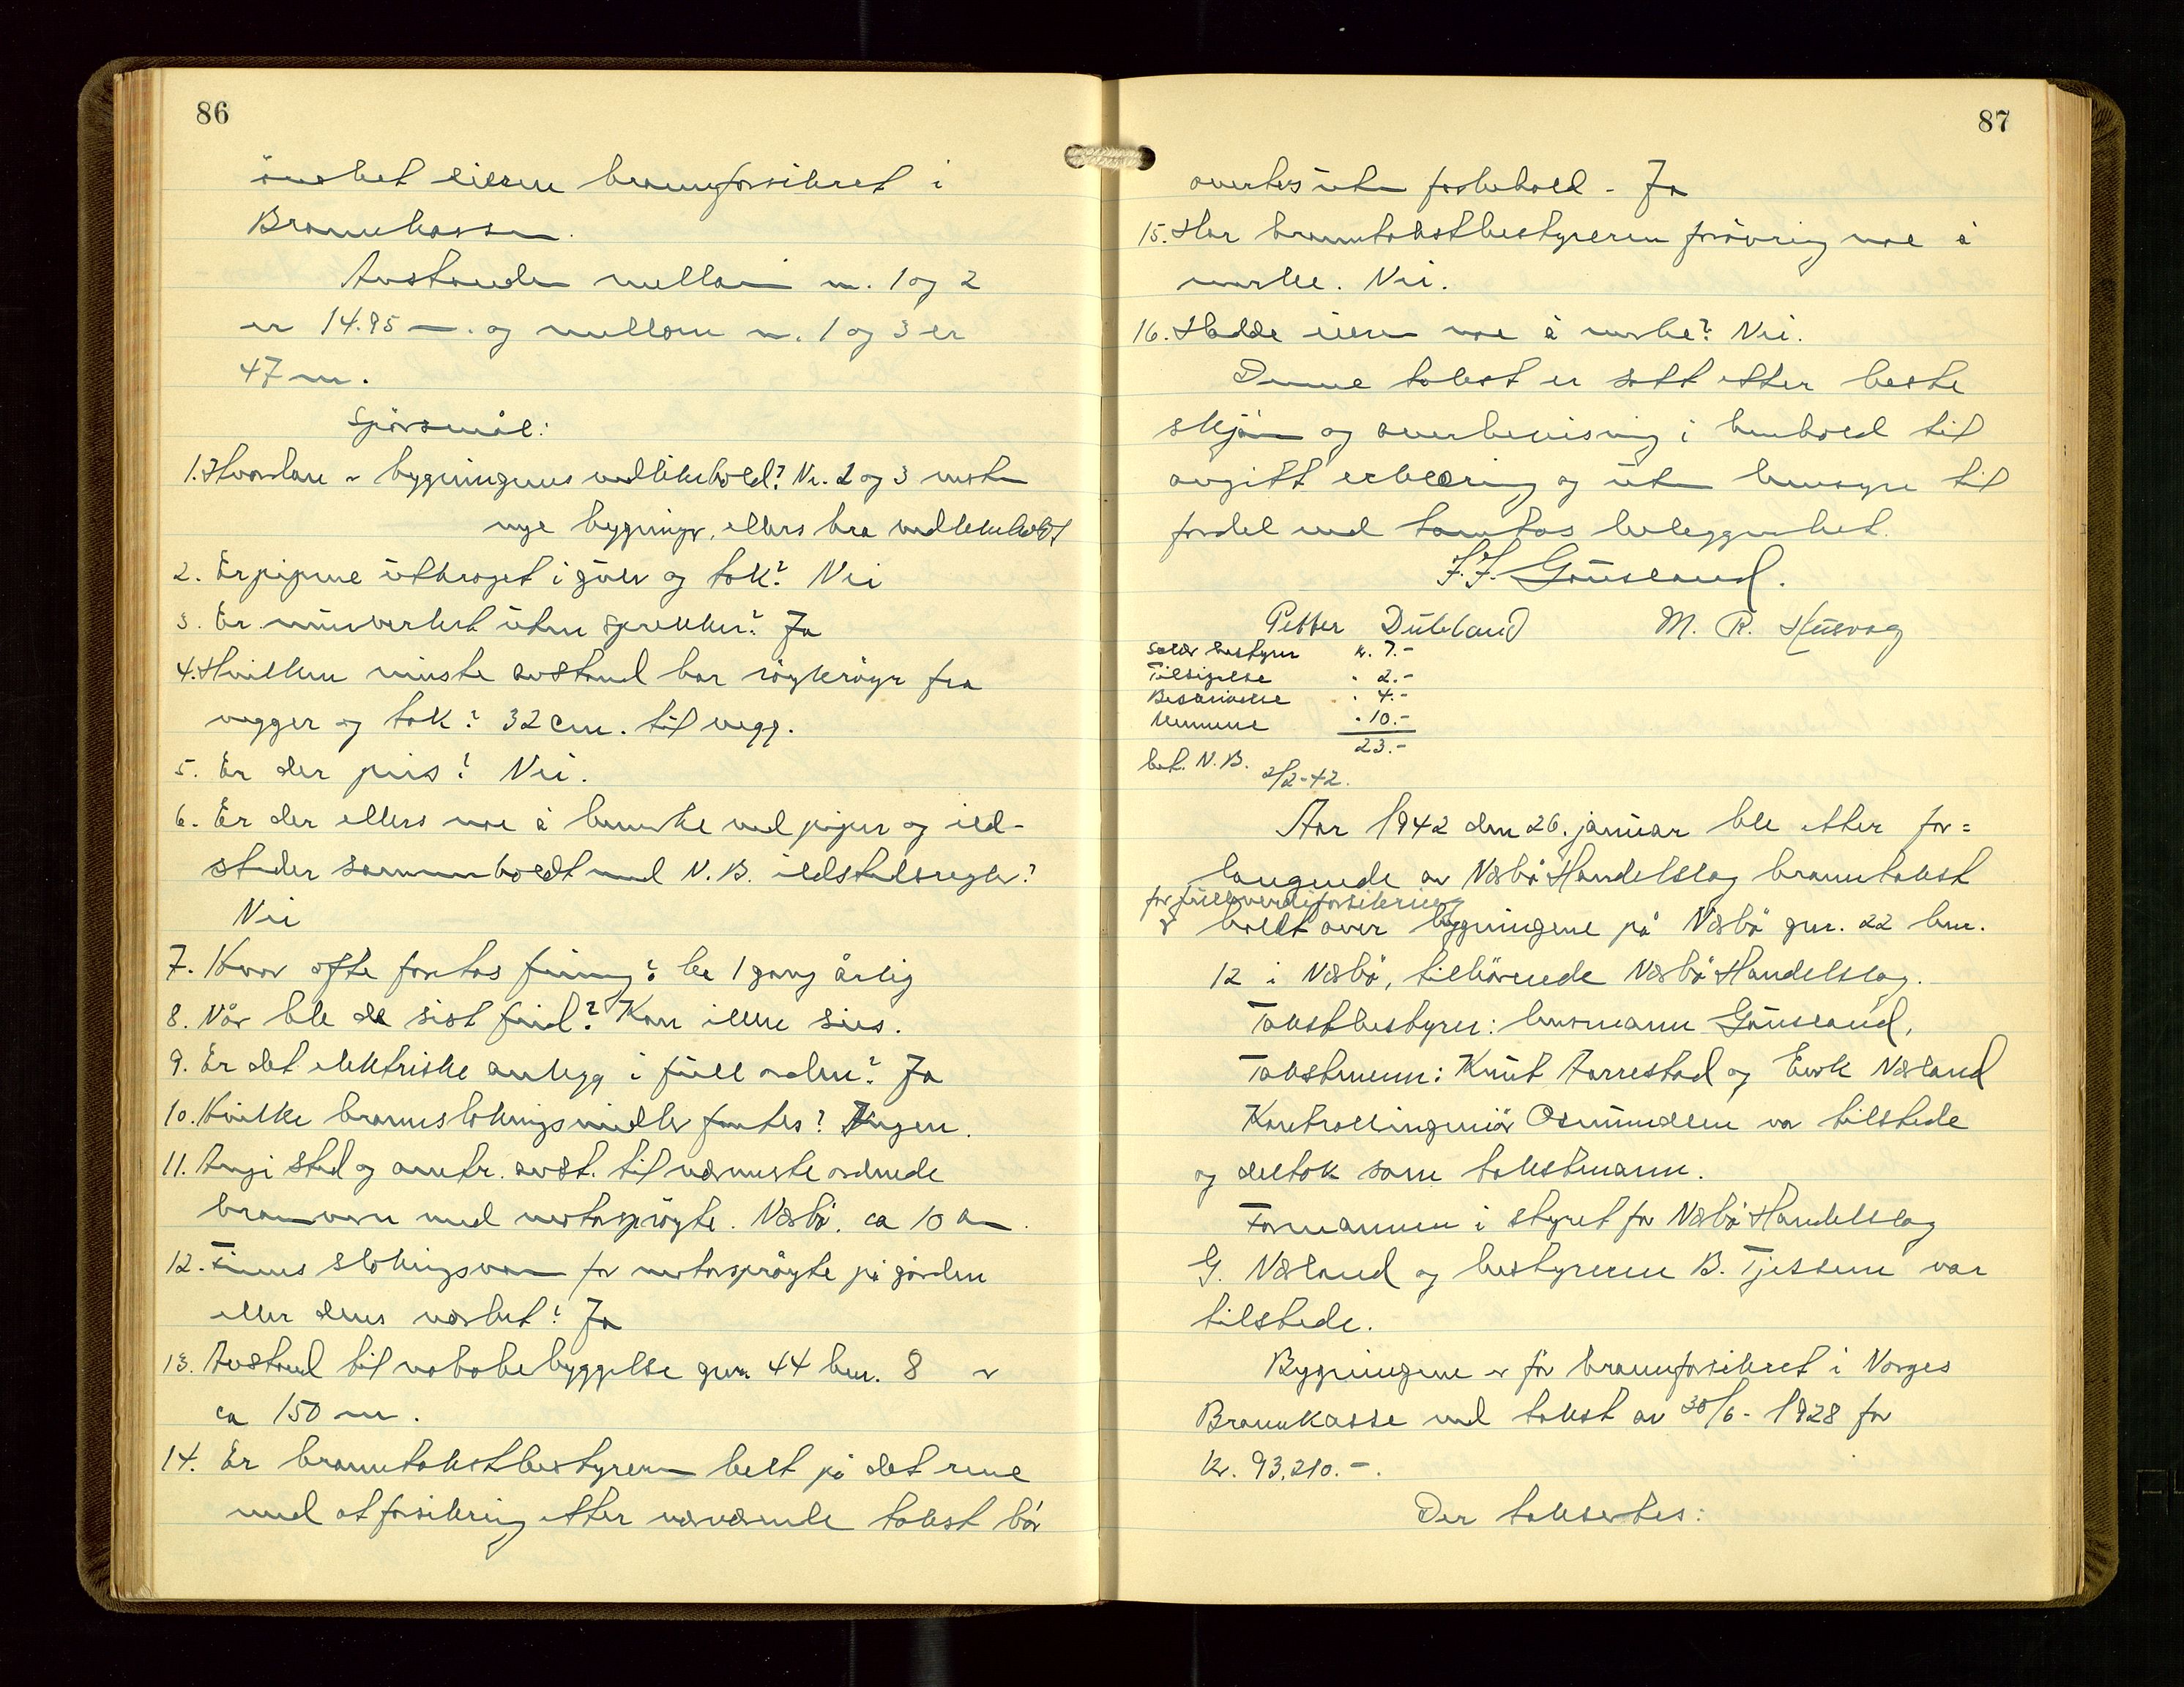 86
önsket eieren brannforsikret i
Brannkassen.
Avstanden mellom nr. 1 og 2
er 14.95 m. og mellom nr. 1 og 3 er
47 m.
Spörsmål:
1. Hvordan er bygningens vedlikehold? Nr. 2 og 3 nesten
nye bygninger, ellers bra vedlikeholdt
2. Er pipene utkraget i gulv og tak? Nei
3. Er murverket uten sprekker? Ja
4. Hvilken minste avstand har röykrör fra
vegger og tak? 32 cm. til vegg.
5. Er der peis? Nei.
6. Er der ellers noe å bemerke ved piper og ild-
steder sammenholdt med N.B. ildstedsregler?
Nei
7. Hvor ofte foretas feiing? 1 gang årlig
8. Når ble de sist feid? Kan ikke sies.
9. Er det elektriske anlegg i full orden? Ja
10. Hvilke brannslokningsmidler fantes? Ingen.
11. Angi sted og omtr. avst. til nærmeste ordnede
brannvern med motorspröyte. Nærbö. ca 10 km.
12. Finns slokningsvann for motorspröyte på gården
eller dens nærhet? Ja
13. Avstand til nabobebyggelse gnr. 44 bnr. 8 er
ca 150 m.
14. Er branntakstbestyreren helt på det rene
med at forsikring etter nærværende takst bör
87
overtas uten forbehold - Ja
15. Har branntakstbestyreren forövrig noe å
merke. Nei.
16. Hadde eieren noe å merke? Nei.
Denne takst er satt etter beste
skjönn og overbevisning i henhold til
avgitt erklæring og uten hensyn til
fordel ved tomtas beleggenhet.
J. J. Gauseland.
Petter Dubland M. R. Husvag
Salær bestyrer kr. 7.-
Tilsigelse " 2.-
Beskrivelse " 4.-
Mennene " 10.-
23.-
bet. N.B. 2/2-42.
Aar 1942 den 26. januar ble etter for=
langende av Nærbö Handelslag branntakst
for fullverdiforsikring
holdt over bygningene på Nærbö gnr. 22 bnr.
12 i Nærbö, tilhörende Nærbö Handelslag.
Takstbestyrer: lensmann Gauseland,
Takstmenn: Knut Aarrestad og Eirik Næland
Kontrollingeniör Osmundsen var tilstede
og deltok som takstmann.
Formannen i styret for Nærbö Handelslag
G. Næland og bestyreren B. Tjessem var
tilstede.
Bygningene er för brannforsikret i Norges
Brannkasse ved takst av 30/6 - 1928 for
kr. 93.210.-.
Der taksertes: